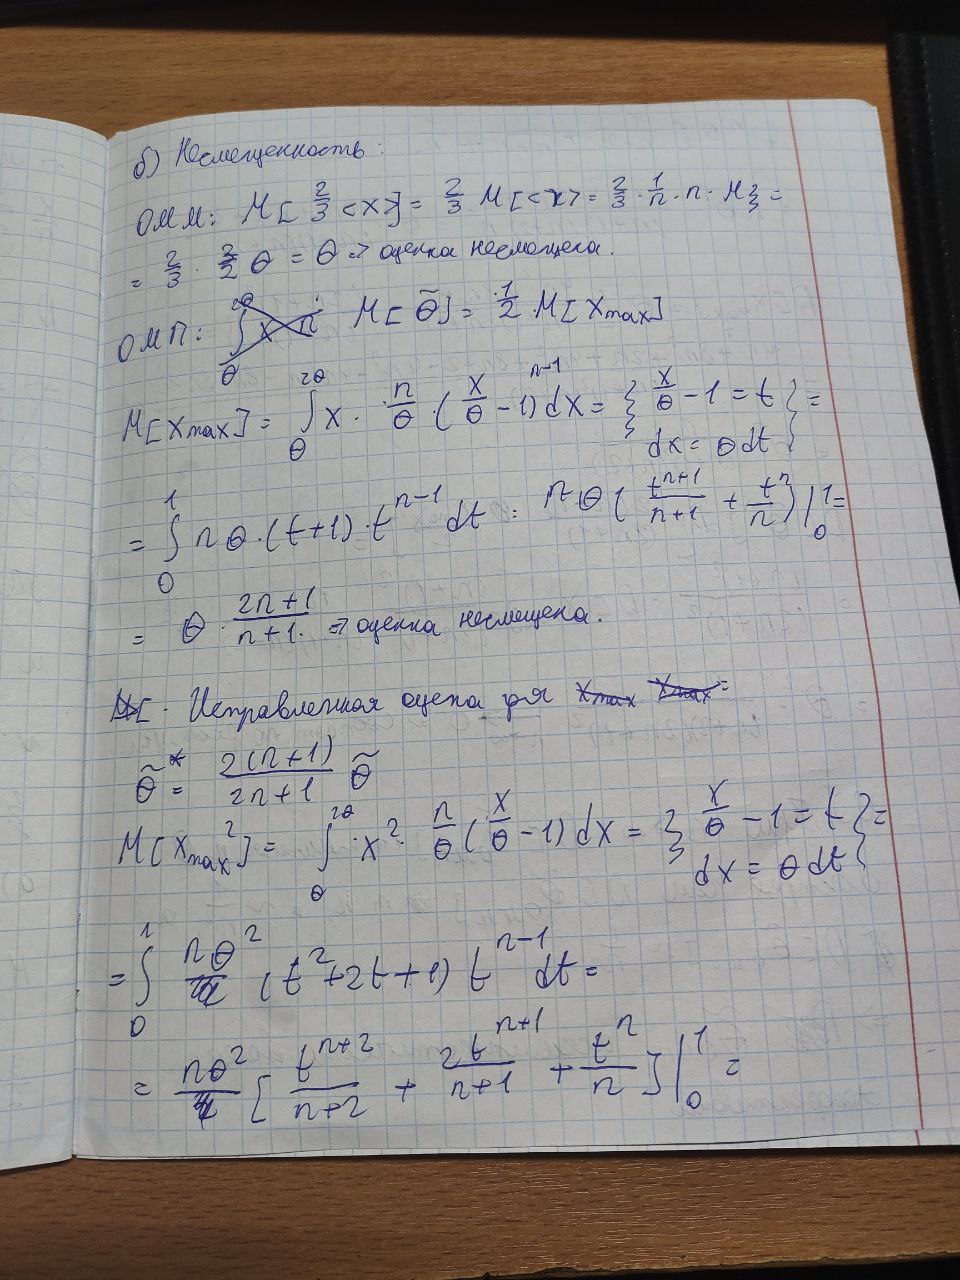 б) Несмещенность:
ОММ: M[2/3 <x>] = 2/3 M[<x> = 2/3 · 1/n · n · Mξ =
= 2/3 · 3/2 θ = θ => оценка несмещена.
ОМП: M[θ̃] = 1/2 · M[x_max]
M[x_max] = ∫_θ^{2θ} x · n/θ · (x/θ - 1)^{n-1} dx = { x/θ - 1 = t
dx = θ dt } =
= ∫_0^1 nθ · (t+1) · t^{n-1} dt = nθ ( t^{n+1}/(n+1) + t^n/n ) |_0^1 =
= θ · (2n+1)/(n+1) => оценка несмещена.
Исправленная оценка для
θ̃* = 2(n+1)/(2n+1) θ̃
M[x_max^2] = ∫_θ^{2θ} x^2 · n/θ (x/θ - 1) dx = { x/θ - 1 = t
dx = θ dt } =
= ∫_0^1 nθ^2 (t^2 + 2t + 1) t^{n-1} dt =
= nθ^2 [ t^{n+2}/(n+2) + 2t^{n+1}/(n+1) + t^n/n ] |_0^1 =